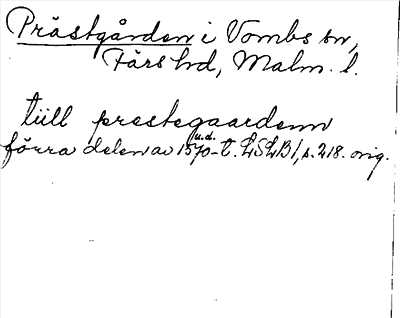 Prästgården i Vombs sn,
Färs hd, Malm. l.
tiill prestegaardenn
u.d.
förra delen av 1570-t. LSLB 1, s. 218. orig.